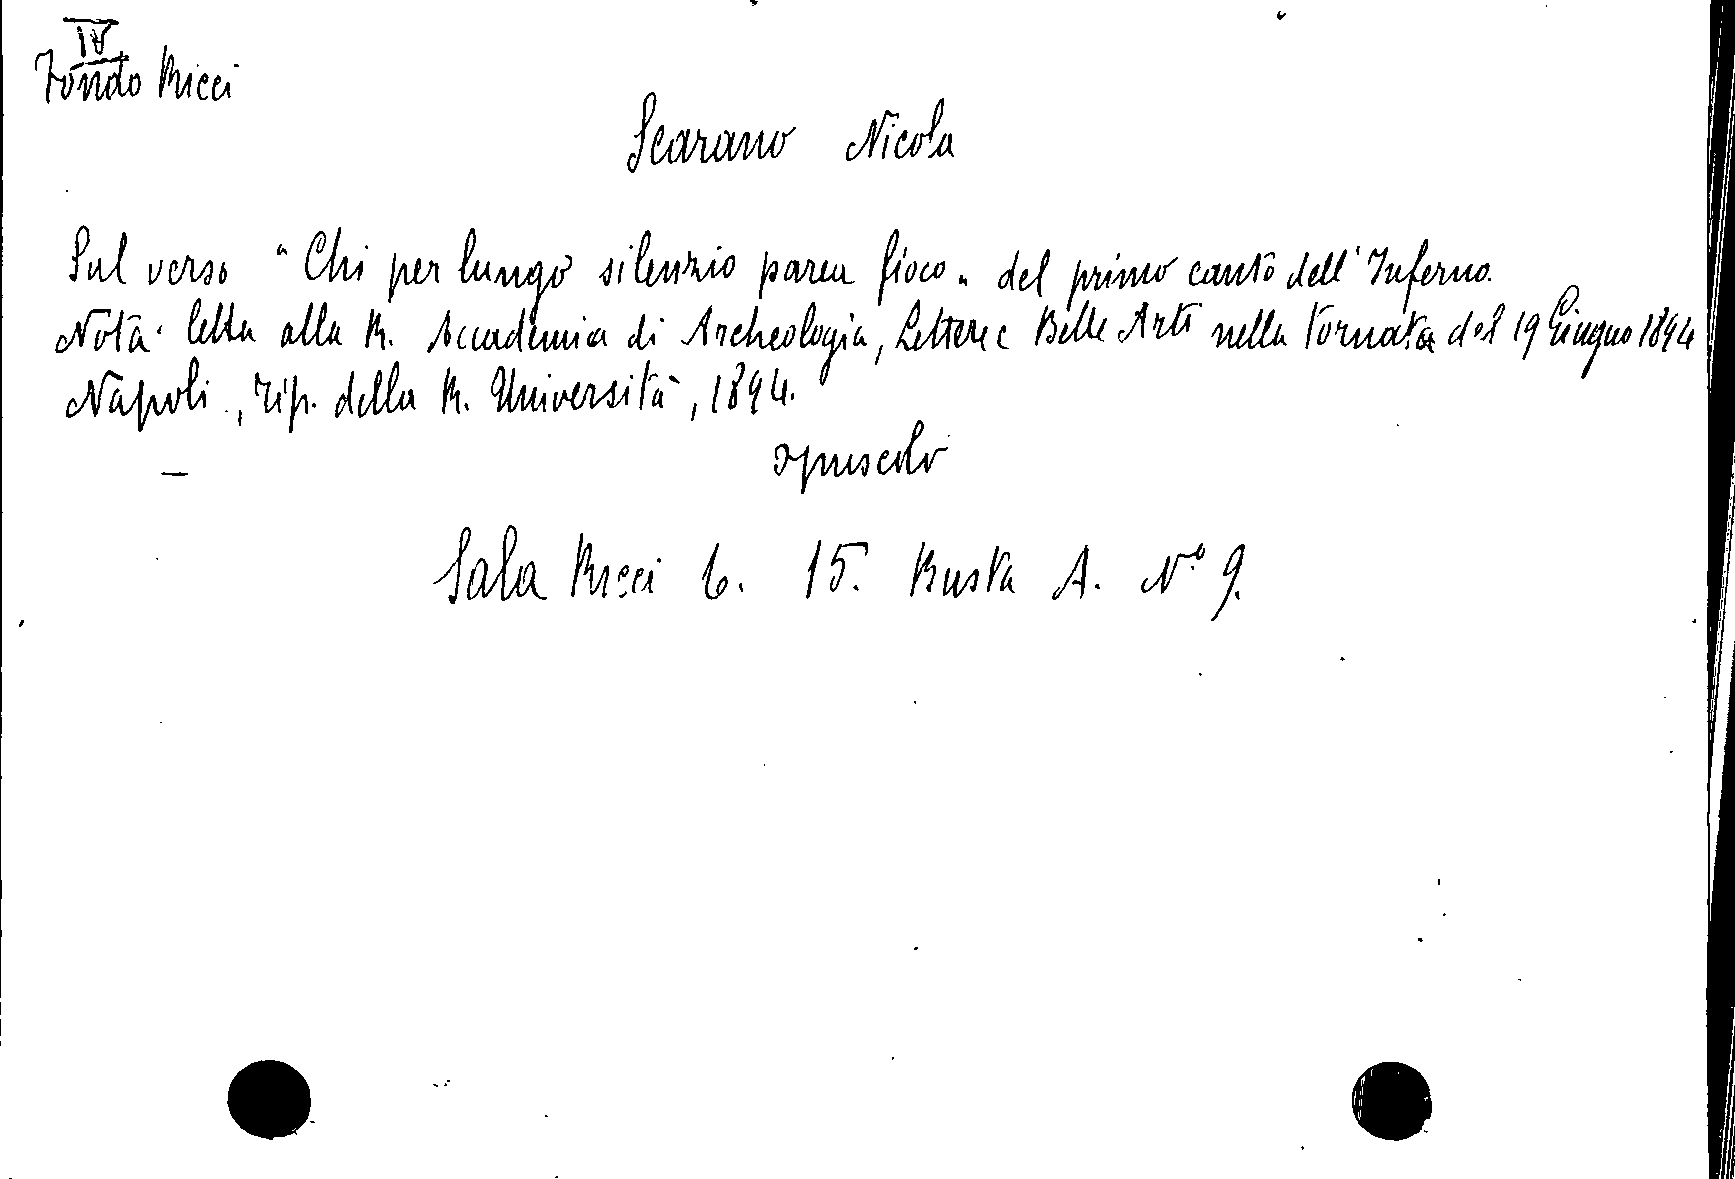 IV
Fondo Ricci
Scarano Nicola
Sul verso "Chi per lungo silenzio parea fioco" del primo canto dell'Inferno.
Nota letta alla R. Accademia di Archeologia, Lettere e Belle Arti nella tornata del 19 Giugno 1894
Napoli, Tip. della R. Università, 1894.
opuscolo
Sala Ricci 6. 15. Busta A. N.º 9.